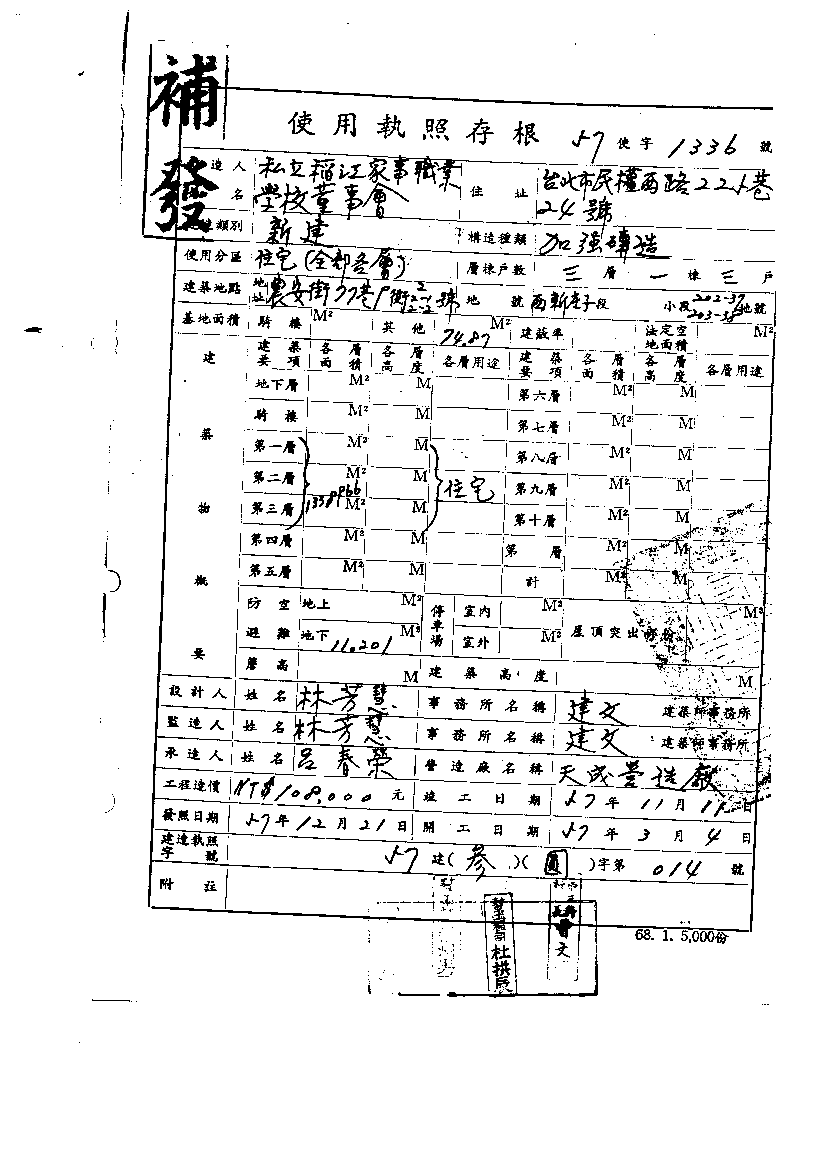 補發
使用執照存根 57使字1336號
造人 私立稻江家事職業 住址 台北市民權西路225巷
名 學校董事會 24號
類別 新建 構造種類 加强磚造
使用分區 住宅(全部各層) 層棟戶數 三層一棟三戶
建築地點 地址 農安街77巷 號 地號 西新庄子段 小段202-37 203-38地號
基地面積 騎樓 M² 其他 74.87 M² 建蔽率 法定空地面積 M²
建築要項 各層面積 各層高度 各層用途 建築要項 各層面積 各層高度 各層用途
地下層 M² M 第六層 M² M
騎樓 M² M 第七層 M² M
第一層 M² M 第八層 M² M
第二層 M² M 住宅 第九層 M² M
第三層 M² M 第十層 M² M
第四層 M² M 第 層 M² M
第五層 M² M 計 M² M
建築物概要
防空 地上 M² 停車場 室內 M² 屋頂突出部份 M²
避難 地下 11.201 M² 室外 M²
簷高 M 建築高度 M
設計人 姓名 林芳慧 事務所名稱 建文 建築師事務所
監造人 姓名 林芳慧 事務所名稱 建文 建築師事務所
承造人 姓名 呂春榮 營造廠名稱 天成營造廠
工程造價 NT$108,000元 竣工日期 57年11月11日
發照日期 57年12月21日 開工日期 57年3月4日
建造執照字號 57建(參)(圓)字第014號
附註
杜拱辰
68. 1. 5,000份